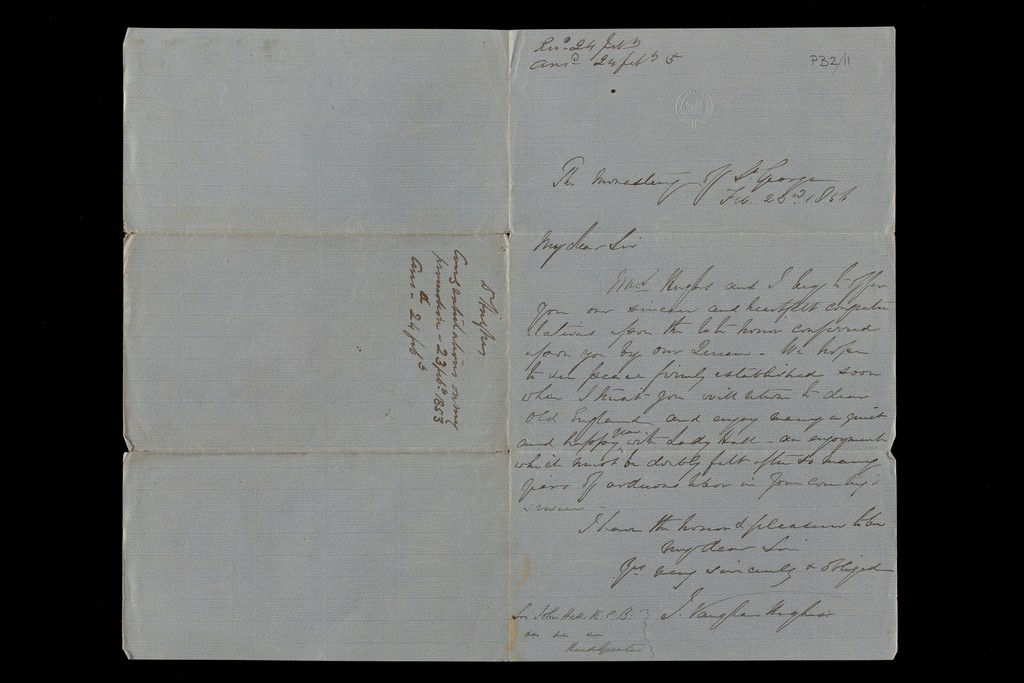 Recd 24 feby
Ansd 24 feby 5
PB2/11
The Monastery of St. George
Feb. 23rd 1856
My dear Sir
Mrs Hughes and I beg to offer
you our sincere and heartfelt congratu
lations upon the late honor conferred
upon you by our Queen - We hope
to see peace firmly established soon
when I trust you will return to dear
old England and enjoy many a quiet
and happy year with Lady Hall - an enjoyment
which must be doubly felt after so many
years of arduous labor in your country's
service -
I have the honor & pleasure to be
My dear Sir
Yrs very sincerely & obliged
J. Vaughan Hughes
Sir John Hall K.C.B.
Head Quarters
Dr Hughes
Congratulations on my
promotion - 23 feby 1855
Ansd 24 feb 5